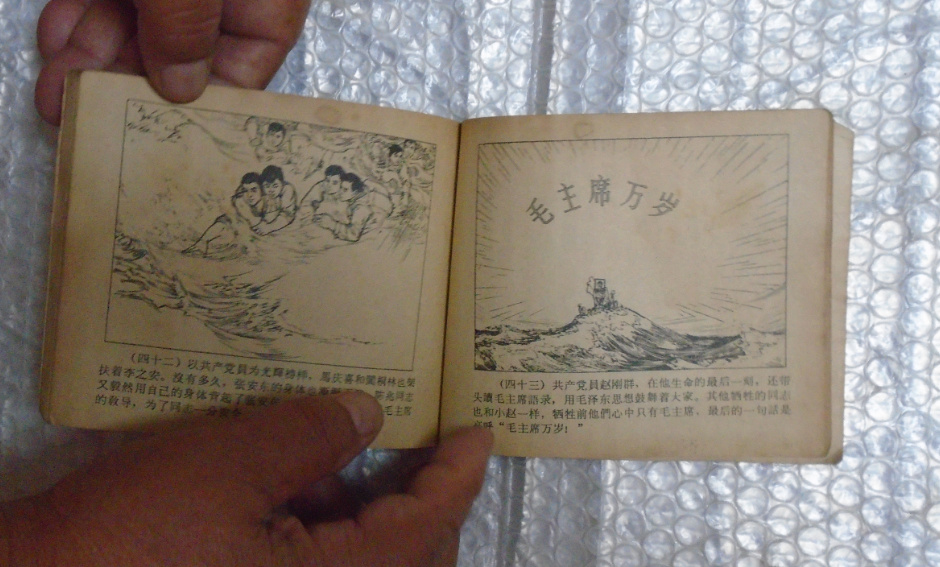 （四十二）以共产党員为光輝榜样，馬庆喜和闖桐林也緊
扶着李之安。沒有多久，张安东的身体也
又毅然用自己的身体背起了张安东 同志
的敎导，为了同志 毛主席
毛主席万岁
（四十三）共产党員赵刚群，在他生命的最后一刻，还带
头讀毛主席語录，用毛泽东思想鼓舞着大家。其他牺牲的同志
也和小赵一样，牺牲前他們心中只有毛主席、最后的一句話是
高呼“毛主席万岁！”